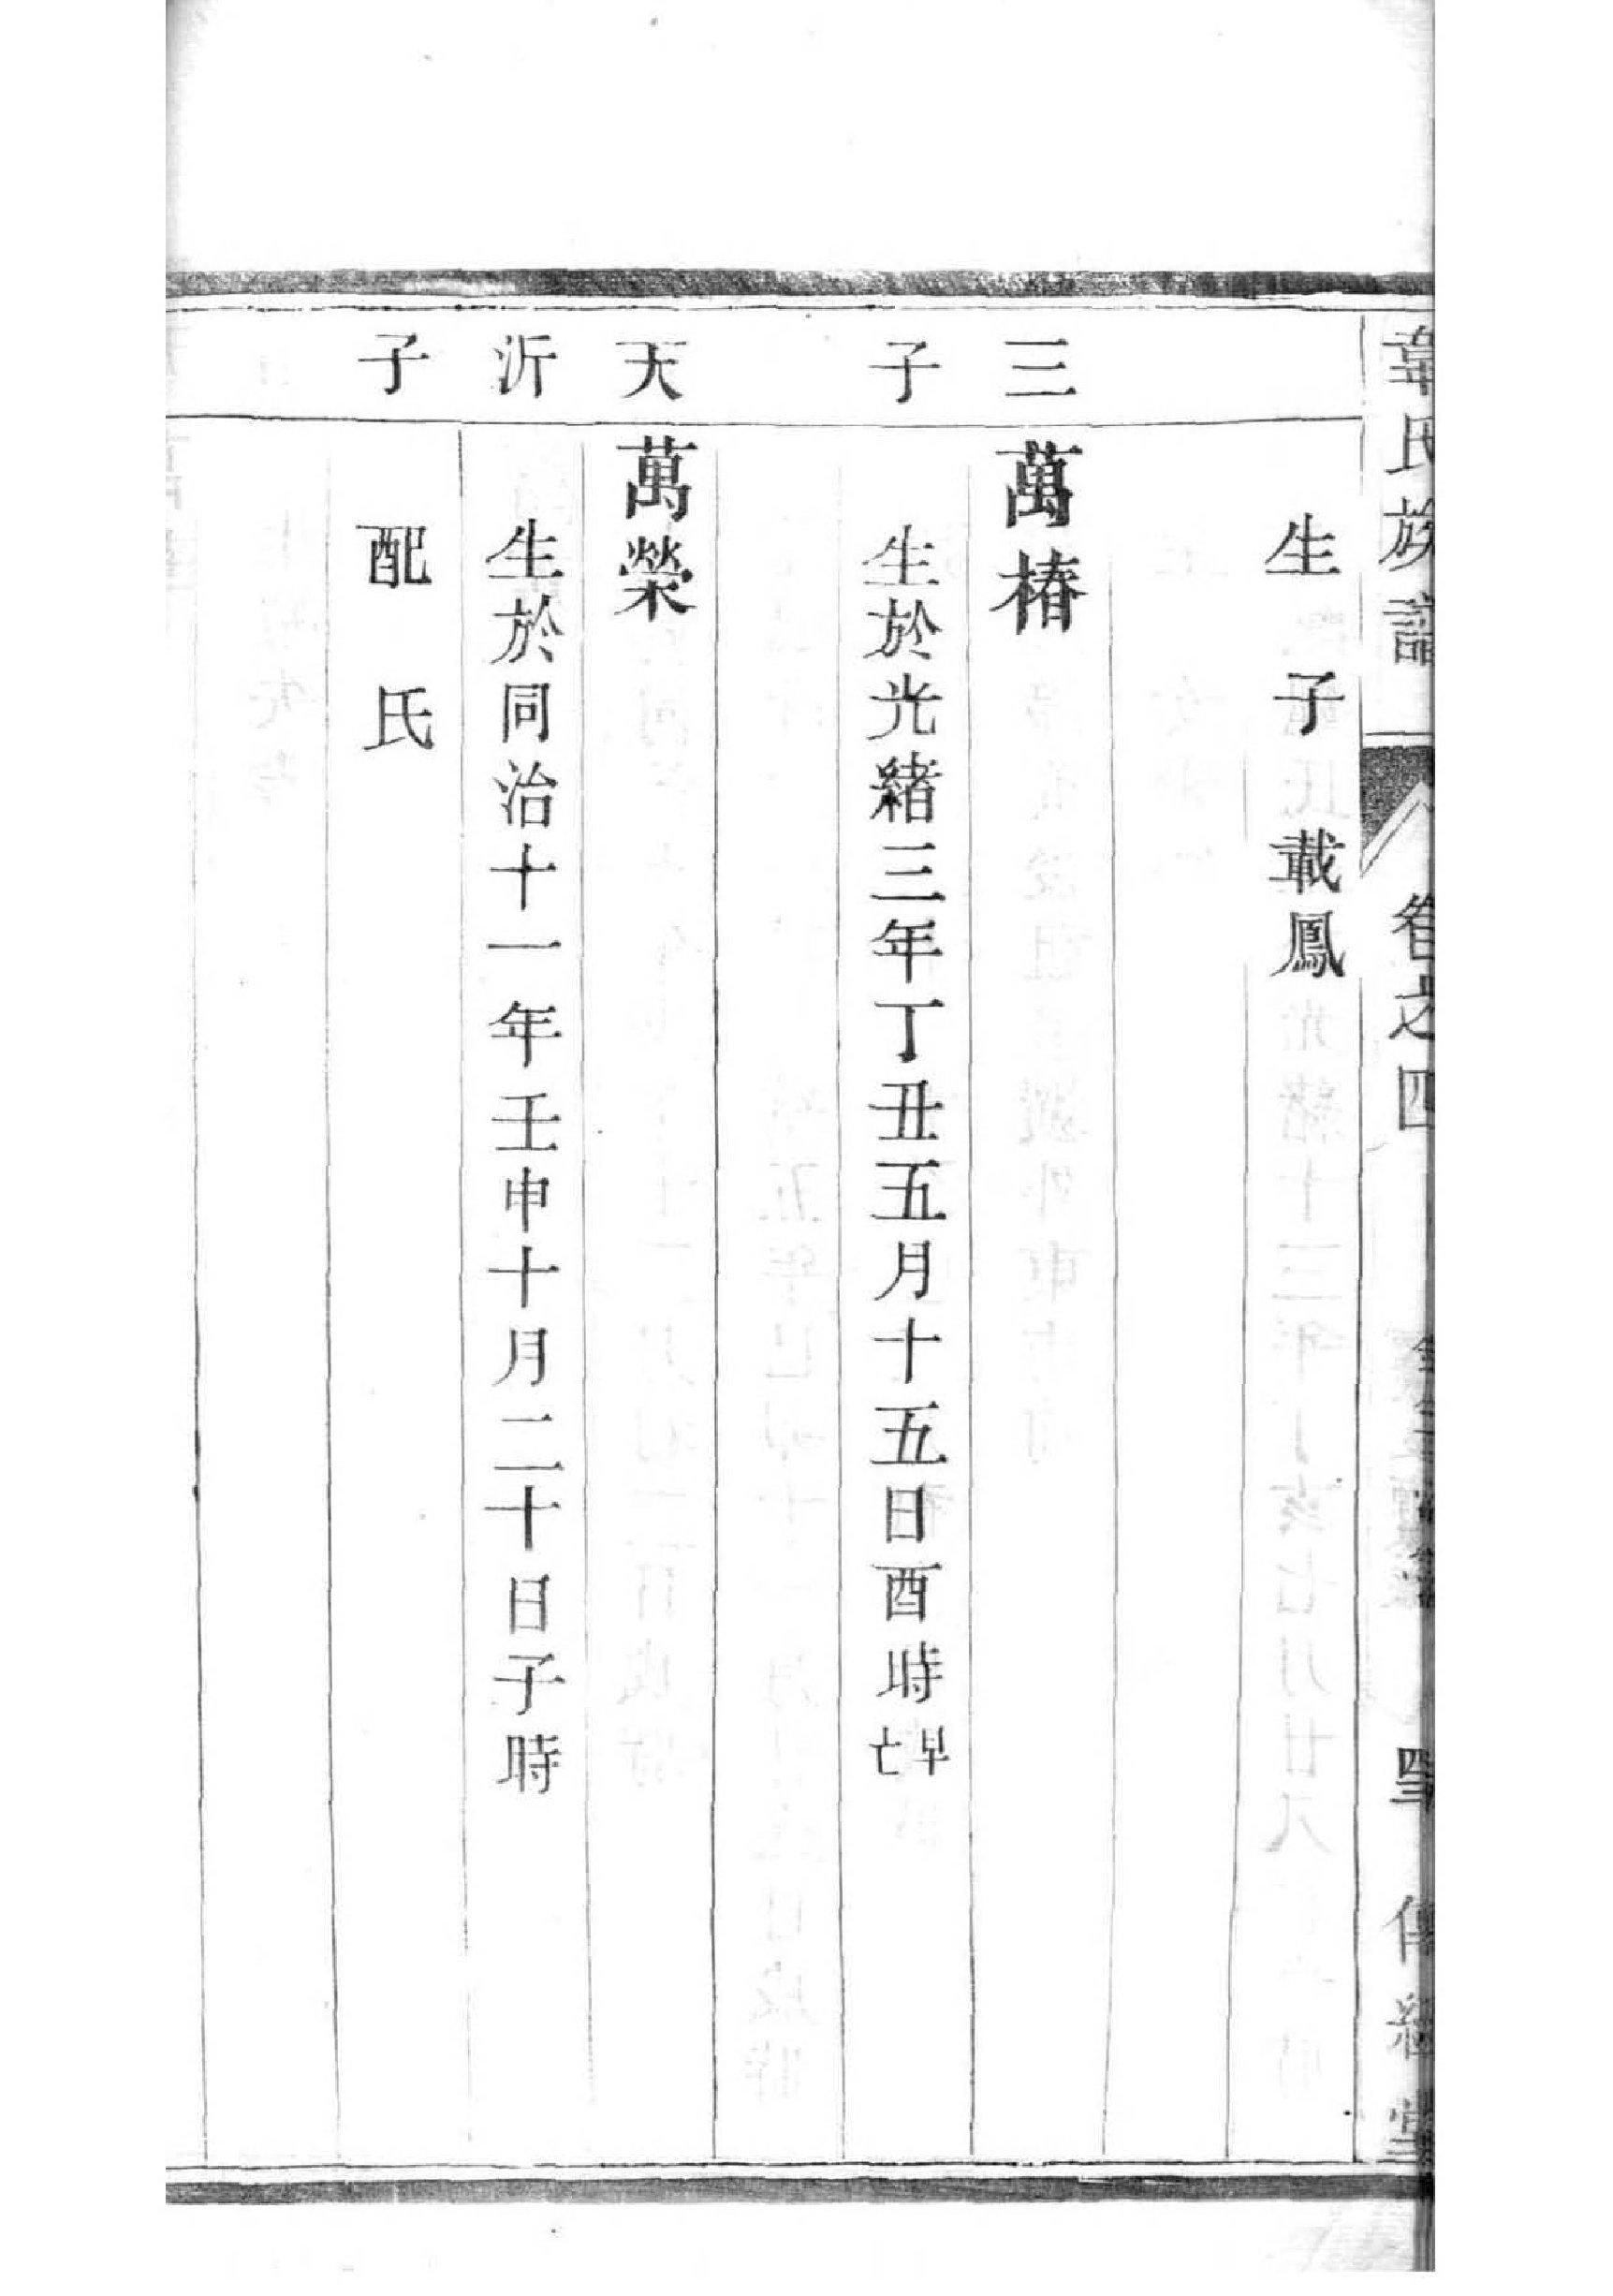 韋氏族譜 卷之四 傳經堂
生子載鳳
三子
萬椿
生於光緒三年丁丑五月十五日酉時早亡
天沂子
萬榮
生於同治十一年壬申十月二十日子時
配 氏